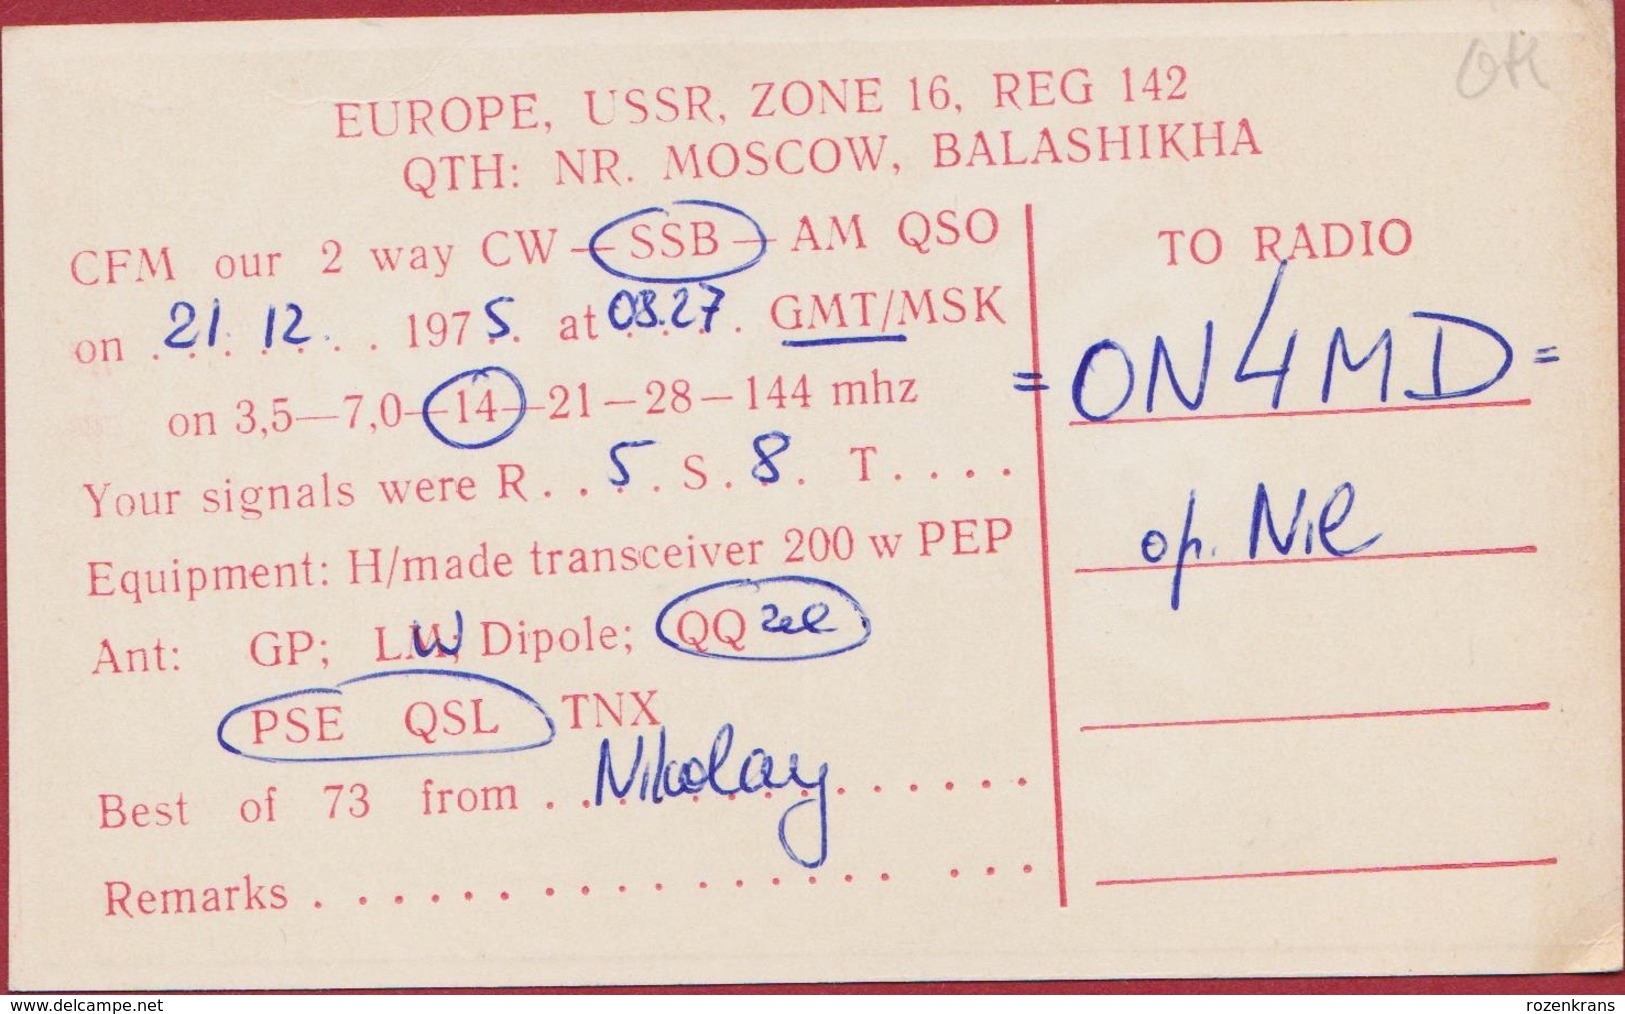 EUROPE, USSR, ZONE 16, REG 142
QTH: NR. MOSCOW, BALASHIKHA
CFM our 2 way CW — SSB — AM QSO
on 21. 12. 1975. at 08.27. GMT/MSK
on 3,5—7,0—14—21—28—144 mhz
Your signals were R. . 5 . S. 8 . T. . . .
Equipment: H/made transceiver 200 w PEP
Ant: GP; LW; Dipole; QQ 2el
PSE QSL TNX
Best of 73 from Nikolay
Remarks . . . . . . . . . . . . . . . . .
TO RADIO
= ON4MD =
op.
www.delcampe.net
rozenkrans